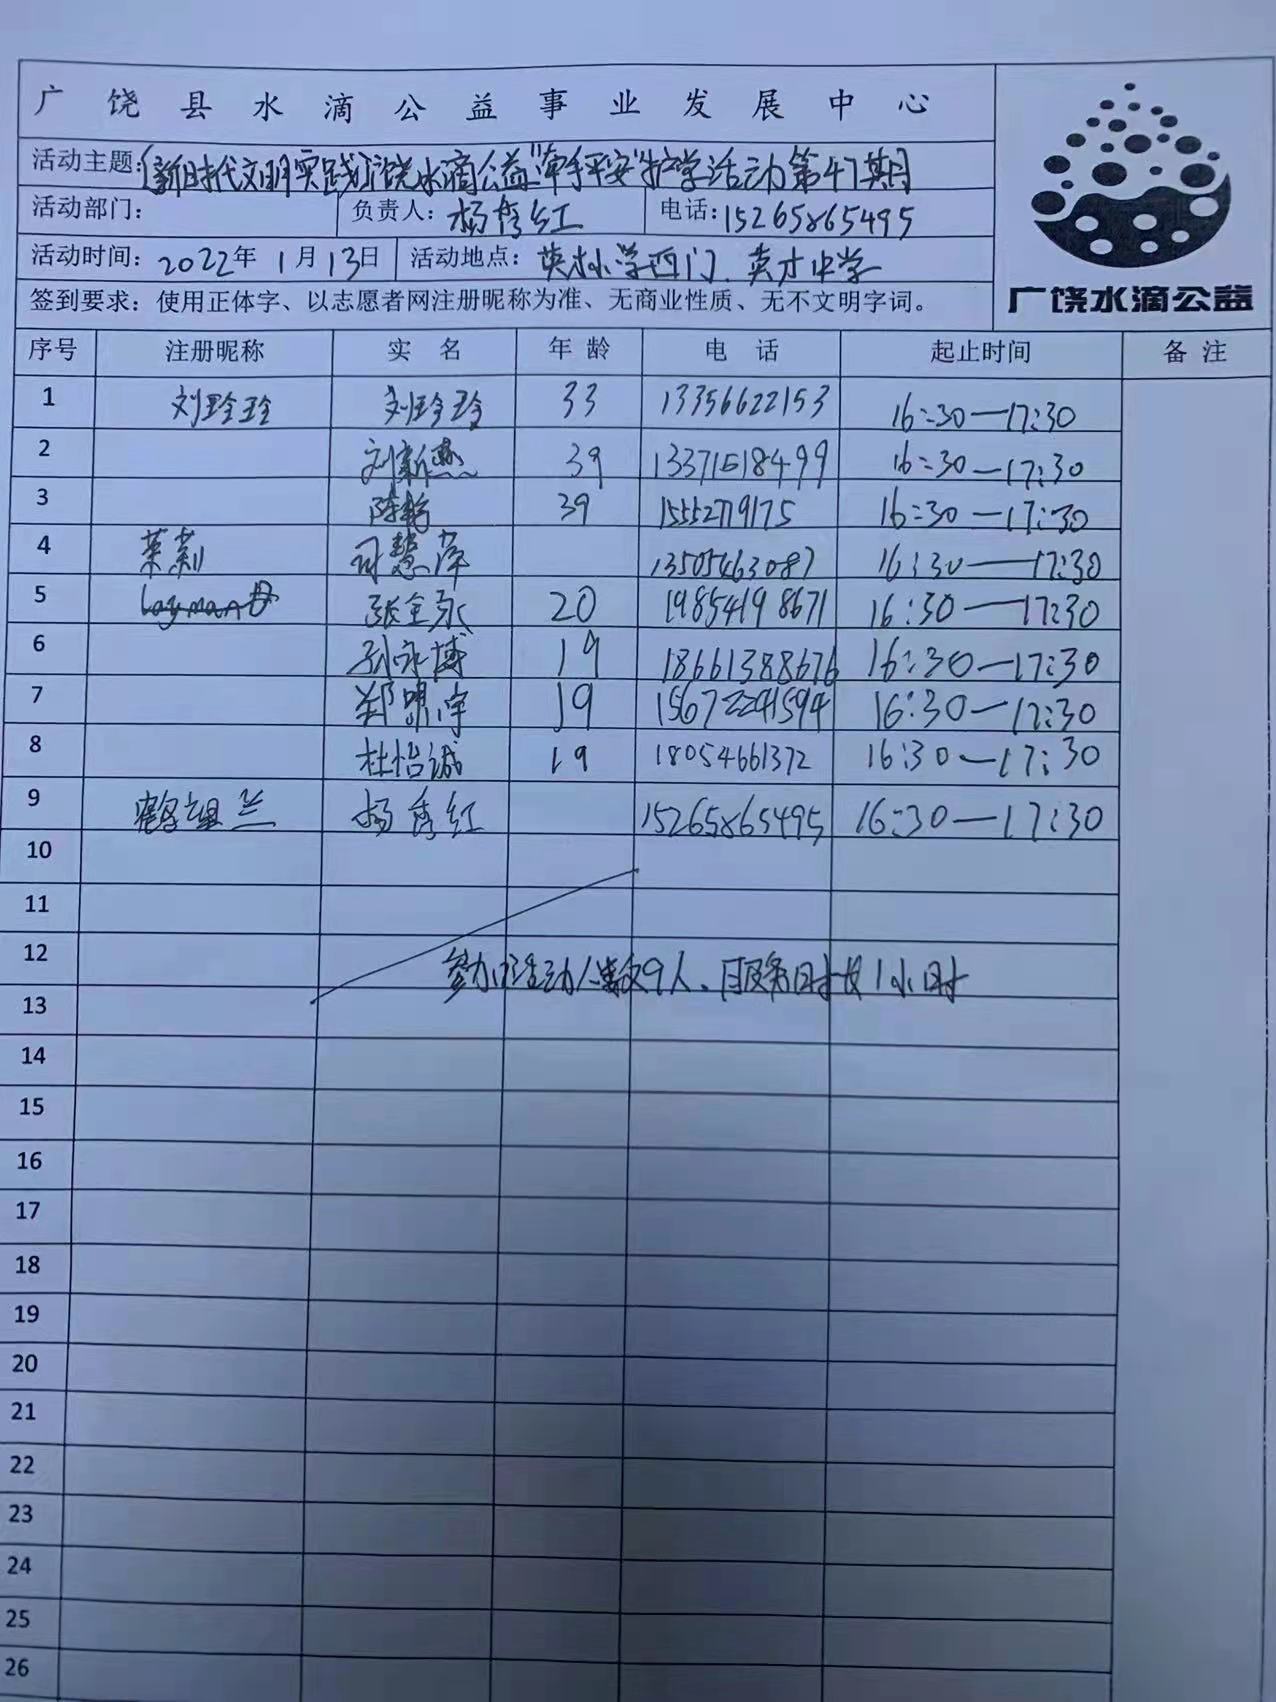 广饶县水滴公益事业发展中心
活动主题:(新时代文明实践)广饶水滴公益"牵手平安"护学活动第47期
活动部门: 负责人:杨秀红 电话:15265865495
活动时间:2022年1月13日 活动地点:英才小学西门、英才中学
签到要求:使用正体字、以志愿者网注册昵称为准、无商业性质、无不文明字词。
广饶水滴公益
序号 注册昵称 实 名 年 龄 电 话 起止时间 备 注
1 刘玲玲 刘玲玲 33 13356622153 16:30—17:30
2 刘新燕 39 13371518499 16:30—17:30
3 39 15552719175 16:30—17:30
4 茉莉 司慧萍 13505463087 16:30—17:30
5 张全永 20 19854198671 16:30—17:30
6 孙永博 19 18661388676 16:30—17:30
7 19 16:30—17:30
8 杜怡诚 19 18054661372 16:30—17:30
9 鹤望兰 杨秀红 15265865495 16:30—17:30
10
11
12 参加活动人数9人、服务时长1小时
13
14
15
16
17
18
19
20
21
22
23
24
25
26